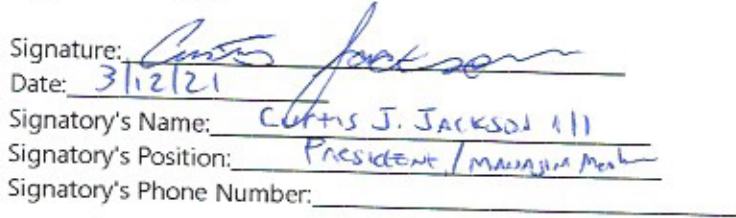 Signature: Curtis Jackson
Date: 3/12/21
Signatory's Name: Curtis J. JACKSON III
Signatory's Position: PRESIDENT / MANAGING Member
Signatory's Phone Number: